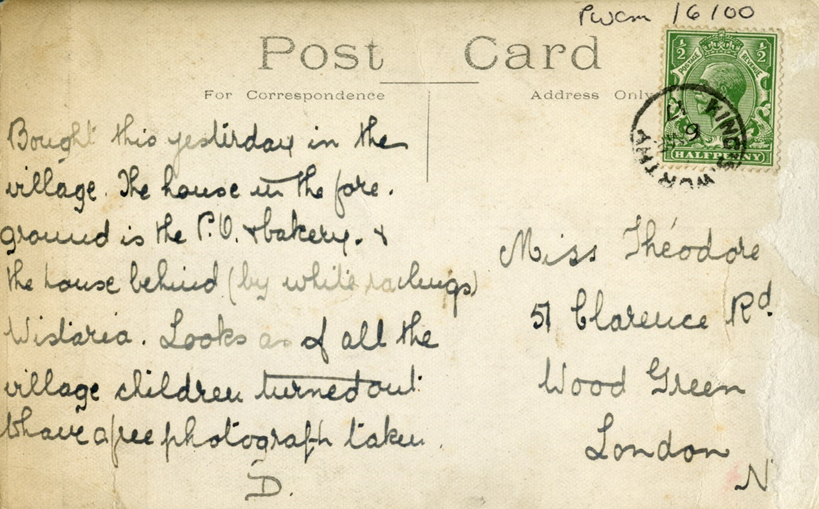 Pwcm /6/00
Post Card
For Correspondence
Address Only
½ ½
HALFPENNY
KINGSWORTHY
Bought this yesterday in the
village. The house in the fore-
ground is the P.O. & bakery. &
the house behind (by white railings)
Wistaria. Looks as if all the
village children turned out
t have a free photograph taken.
D.
Miss Théodore
51 Clarence Rd.
Wood Green
London
N